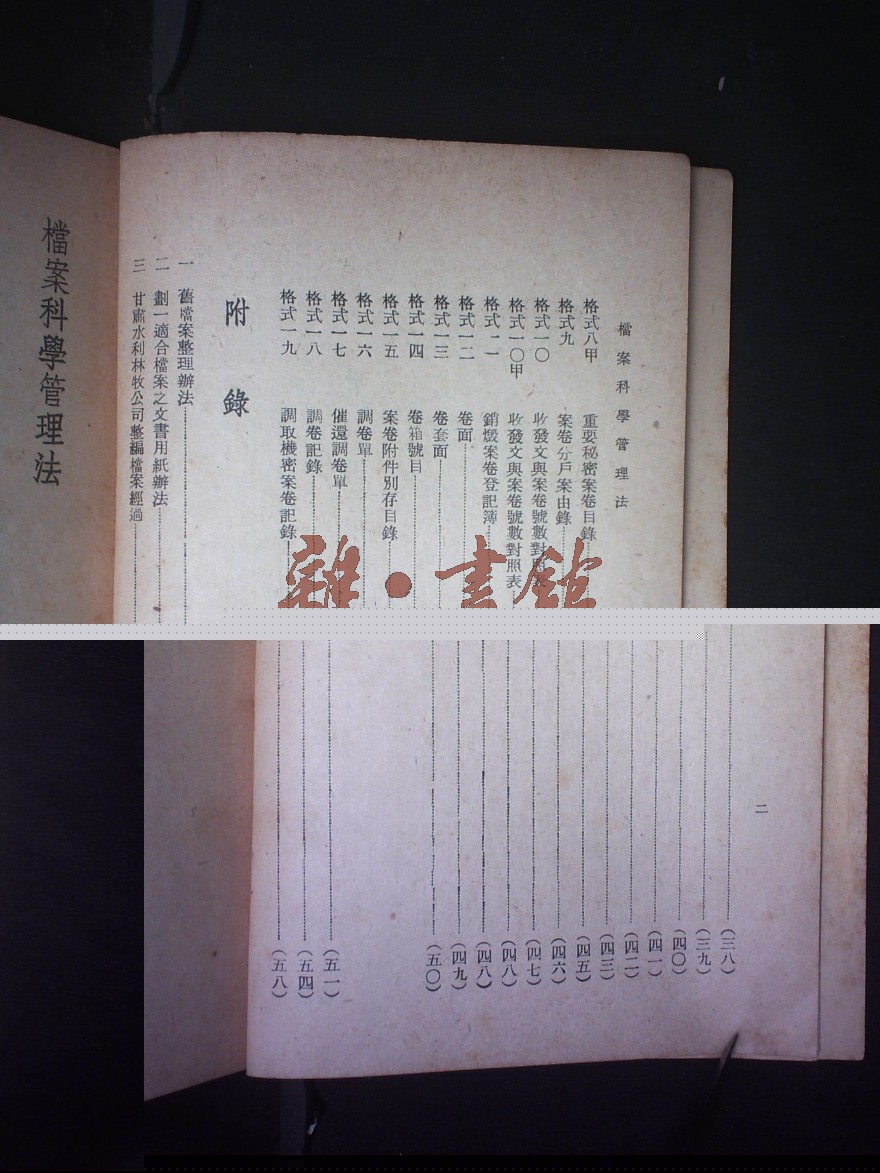 檔案科學管理法 二
格式八甲 重要秘密案卷目錄……(三八)
格式九 案卷分戶案由錄……(三九)
格式一〇 收發文與案卷號數對照表……(四〇)
格式一〇甲 收發文與案卷號數對照表……(四一)
格式一一 銷燬案卷登記簿……(四二)
格式一二 卷面……(四三)
格式一三 卷套面……(四五)
格式一四 卷箱號目……(四六)
格式一五 案卷附件別存目錄……(四七)
格式一六 調卷單……(四八)
格式一七 催還調卷單……(四八)
格式一八 調卷記錄……(四九)
格式一九 調取機密案卷記錄……(五〇)
附錄
一 舊檔案整理辦法……(五一)
二 劃一適合檔案之文書用紙辦法……(五四)
三 甘肅水利林牧公司整編檔案經過……(五八)
檔案科學管理法
雜·書館